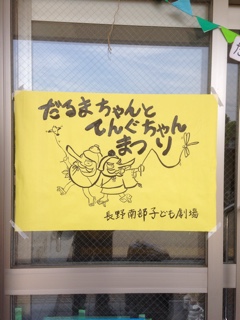 だるまちゃんと
てんぐちゃん
まつり
長野南部子ども劇場